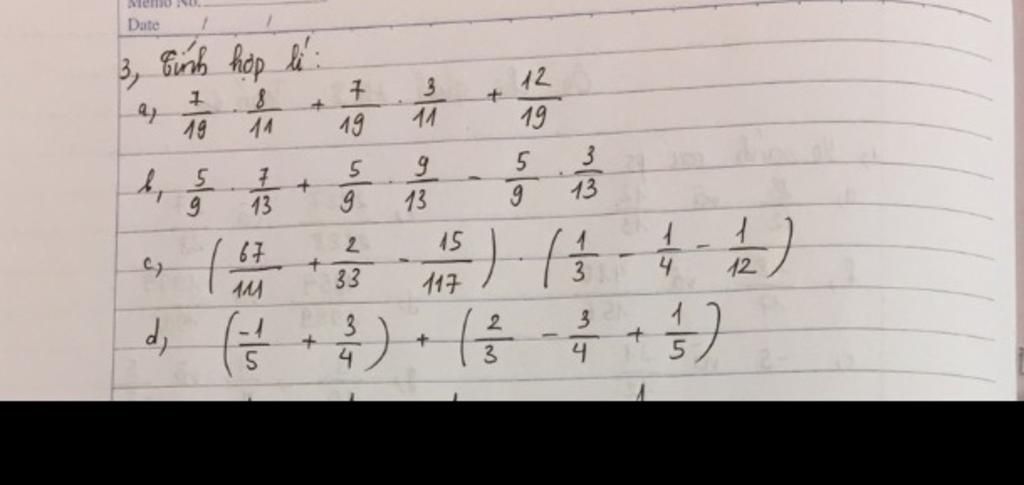 Memo No.
Date / /
3, Tính hợp lí:
a, 7/19 . 8/11 + 7/19 . 3/11 + 12/19
b, 5/9 . 7/13 + 5/9 . 9/13 - 5/9 . 3/13
c, (67/111 + 2/33 - 15/117) . (1/3 - 1/4 - 1/12)
d, (-1/5 + 3/4) + (2/3 - 3/4 + 1/5)